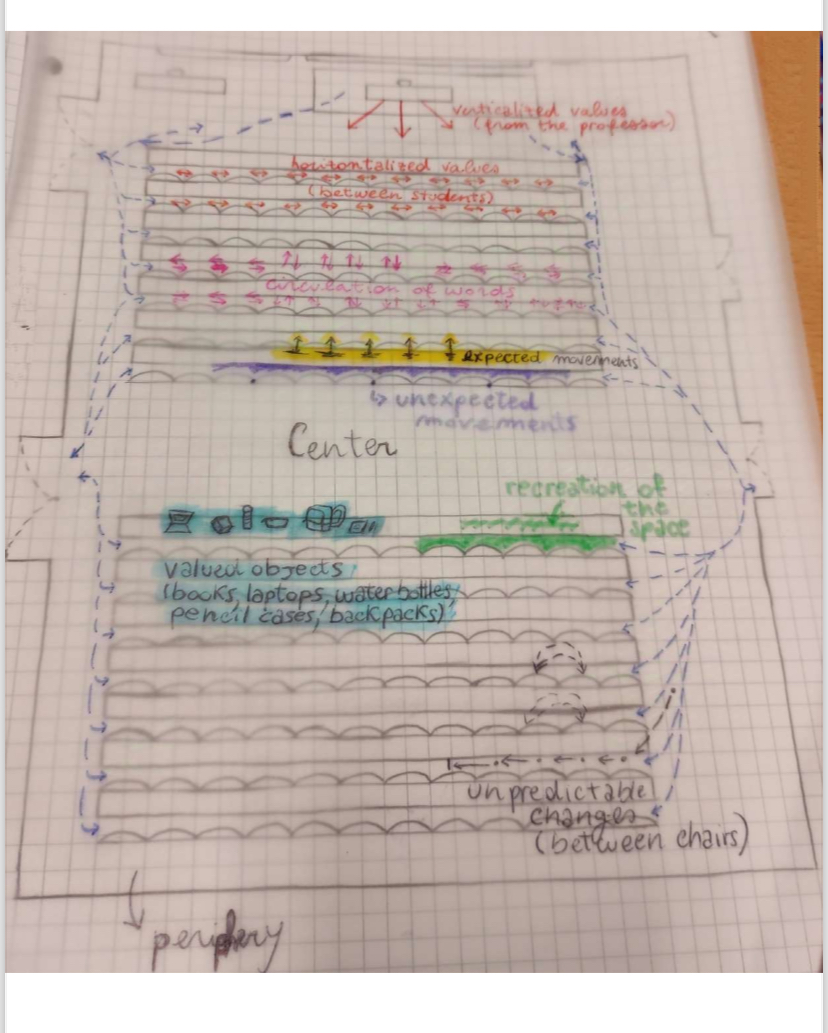 verticalized values
(from the professor)
horizontalized values
(between students)
Circulation of words
expected movements
↳ unexpected
movements
Center
recreation of
the
space
valued objects
(books, laptops, water bottles,
pencil cases, backpacks)
unpredictable
changes
(between chairs)
periphery